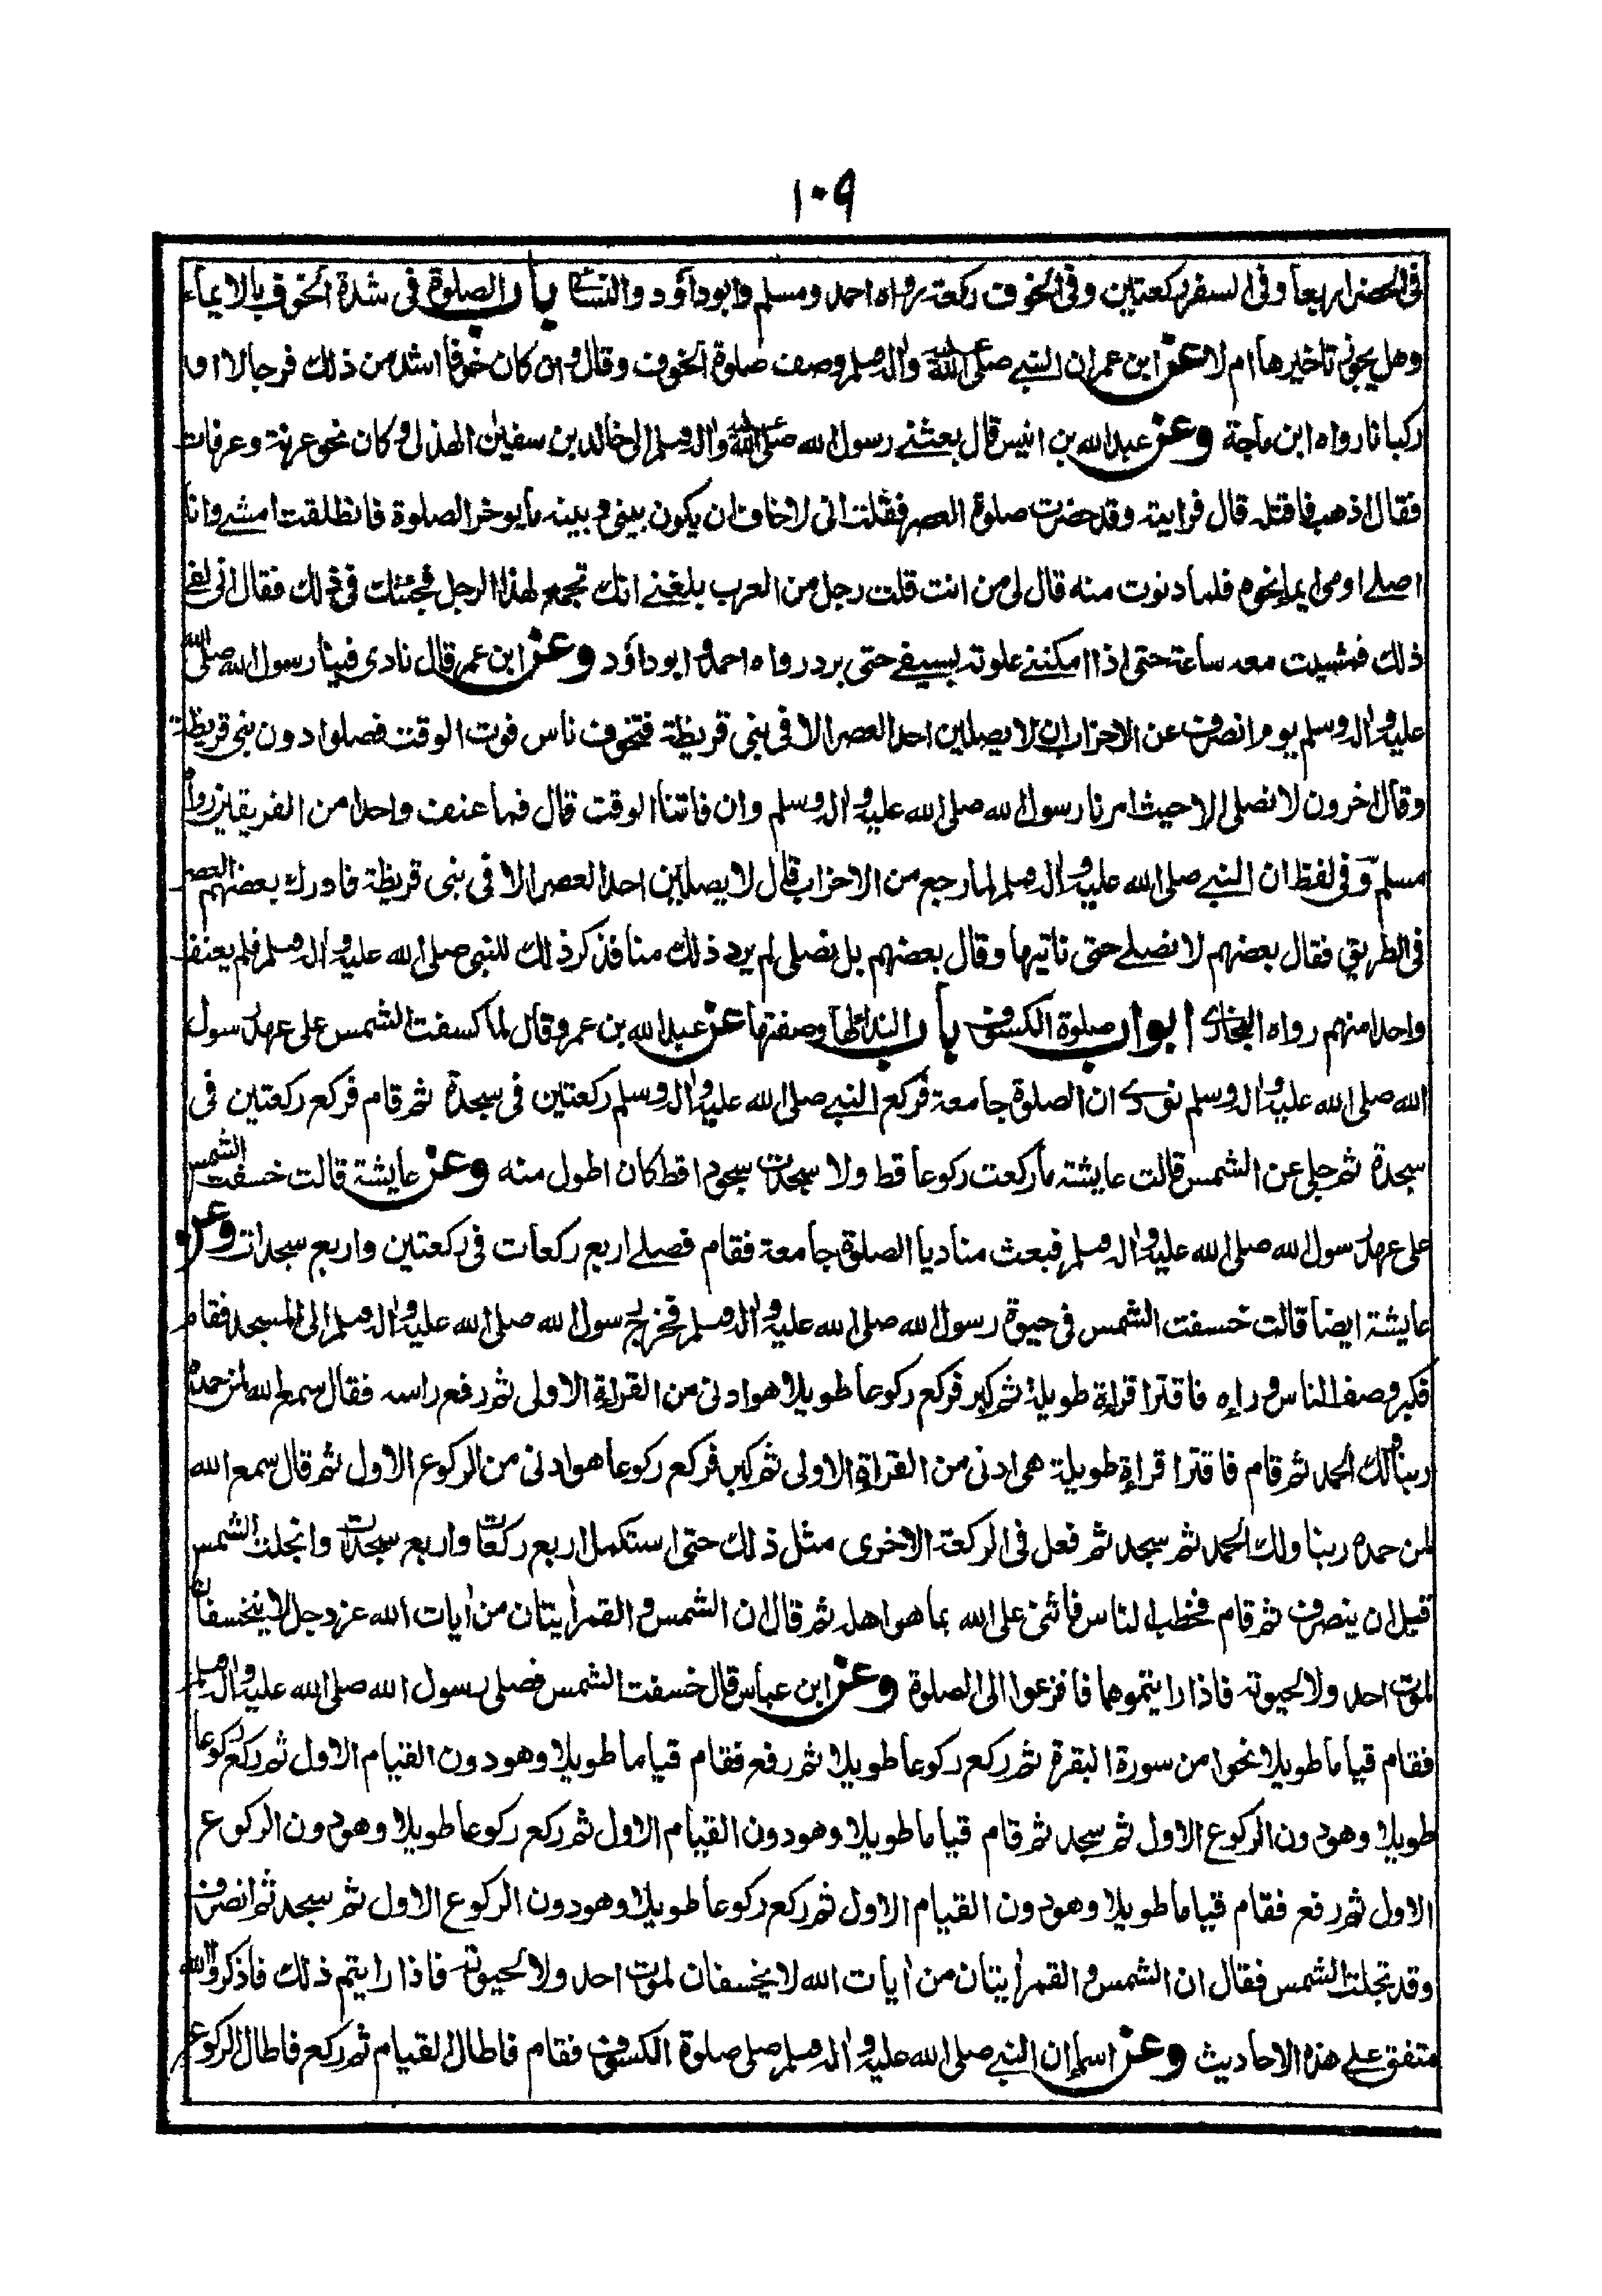 ١٠٩
فى الحضر اربعا وفى السفر ركعتين وفى الخوف ركعة رواه احمد ومسلم وابوداؤد والنسائے باب الصلوة فى شدة الخوف بالايماء
وهل يجوز تاخيرها ام لا عن ابن عمر ان النبے صلى الله عليه واله وسلم وصف صلوة الخوف وقال وان كان خوفا اشد من ذلك فرجالا او
ركبانا رواه ابن ماجة وعن عبد الله بن انيس قال بعثنے رسول الله صلى الله عليه واله وسلم الى خالد بن سفين الهذلى وكان نحو عرنة وعرفات
فقال اذهب فاقتله قال فرايته وقد حضرت صلوة العصر فقلت انى لاخاف ان يكون بينى وبينه ما يوخر الصلوة فانطلقت امشے وانا
اصلے اومى ايماء نحوه فلما دنوت منه قال لى من انت قلت رجل من العرب بلغنے انك تجمع لهذا الرجل فجئتك فى ذلك فقال انى لفے
ذلك فمشيت معه ساعة حتى اذا امكننے علوته بسيفے حتى برد رواه احمد وابوداؤد وعن ابن عمر قال نادى فينا رسول الله صلى الله
عليه واله وسلم يوم انصرف عن الاحزاب ان لا يصلين احد العصر الا فى بنى قريظة فتخوف ناس فوت الوقت فصلوا دون بنى قريظة
وقال اخرون لا نصلى الا حيث امرنا رسول الله صلى الله عليه واله وسلم وان فاتنا الوقت قال فما عنف واحدا من الفريقين رواه
مسلم وفى لفظ ان النبے صلى الله عليه واله وسلم لما رجع من الاحزاب قال لا يصلين احد العصر الا فى بنى قريظة فادرك بعضهم العصر
فى الطريق فقال بعضهم لا نصلے حتى ناتيها وقال بعضهم بل نصلى لم يرد ذلك منا فذكر ذلك للنبى صلى الله عليه واله وسلم فلم يعنف
واحدا منهم رواه البخارى ابواب صلوة الكسوف باب النداء لها وصفتها عن عبد الله بن عمرو قال لما كسفت الشمس على عهد رسول
الله صلى الله عليه واله وسلم نودے ان الصلوة جامعة فركع النبے صلى الله عليه واله وسلم ركعتين فى سجدة ثم قام فركع ركعتين فى
سجدة ثم جلى عن الشمس قالت عايشة ما ركعت ركوعا قط ولا سجدت سجودا قط كان اطول منه وعن عايشة قالت خسفت الشمس
على عهد رسول الله صلى الله عليه واله وسلم فبعث مناديا الصلوة جامعة فقام فصلے اربع ركعات فى ركعتين واربع سجدات وعن
عايشة ايضا قالت خسفت الشمس فى حيوة رسول الله صلى الله عليه واله وسلم فخرج رسول الله صلى الله عليه واله وسلم الى المسجد فقام
فكبر وصف الناس وراءه فاقترا قراءة طويلة ثم كبر فركع ركوعا طويلا هو ادنى من القراءة الاولى ثم رفع راسه فقال سمع الله لمن حمده
ربنا ولك الحمد ثم قام فاقترا قراءة طويلة هى ادنى من القراءة الاولى ثم كبر فركع ركوعا هو ادنى من الركوع الاول ثم قال سمع الله
لمن حمده ربنا ولك الحمد ثم سجد ثم فعل فى الركعة الاخرى مثل ذلك حتى استكمل اربع ركعات واربع سجدات وانجلت الشمس
قبل ان ينصرف ثم قام فخطب الناس فاثنى على الله بما هو اهله ثم قال ان الشمس والقمر ايتان من ايات الله عز وجل لا ينخسفان
لموت احد ولا لحيوته فاذا رايتموهما فافزعوا الى الصلوة وعن ابن عباس قال خسفت الشمس فصلى رسول الله صلى الله عليه واله وسلم
فقام قياما طويلا نحوا من سورة البقرة ثم ركع ركوعا طويلا ثم رفع فقام قياما طويلا وهو دون القيام الاول ثم ركع ركوعا
طويلا وهو دون الركوع الاول ثم سجد ثم قام قياما طويلا وهو دون القيام الاول ثم ركع ركوعا طويلا وهو دون الركوع
الاول ثم رفع فقام قياما طويلا وهو دون القيام الاول ثم ركع ركوعا طويلا وهو دون الركوع الاول ثم سجد ثم انصرف
وقد تجلت الشمس فقال ان الشمس والقمر ايتان من ايات الله لا يخسفان لموت احد ولا لحيوته فاذا رايتم ذلك فاذكروا الله
متفق علے هذه الاحاديث وعن اسماء ان النبے صلى الله عليه واله وسلم صلى صلوة الكسوف فقام فاطال القيام ثم ركع فاطال الركوع